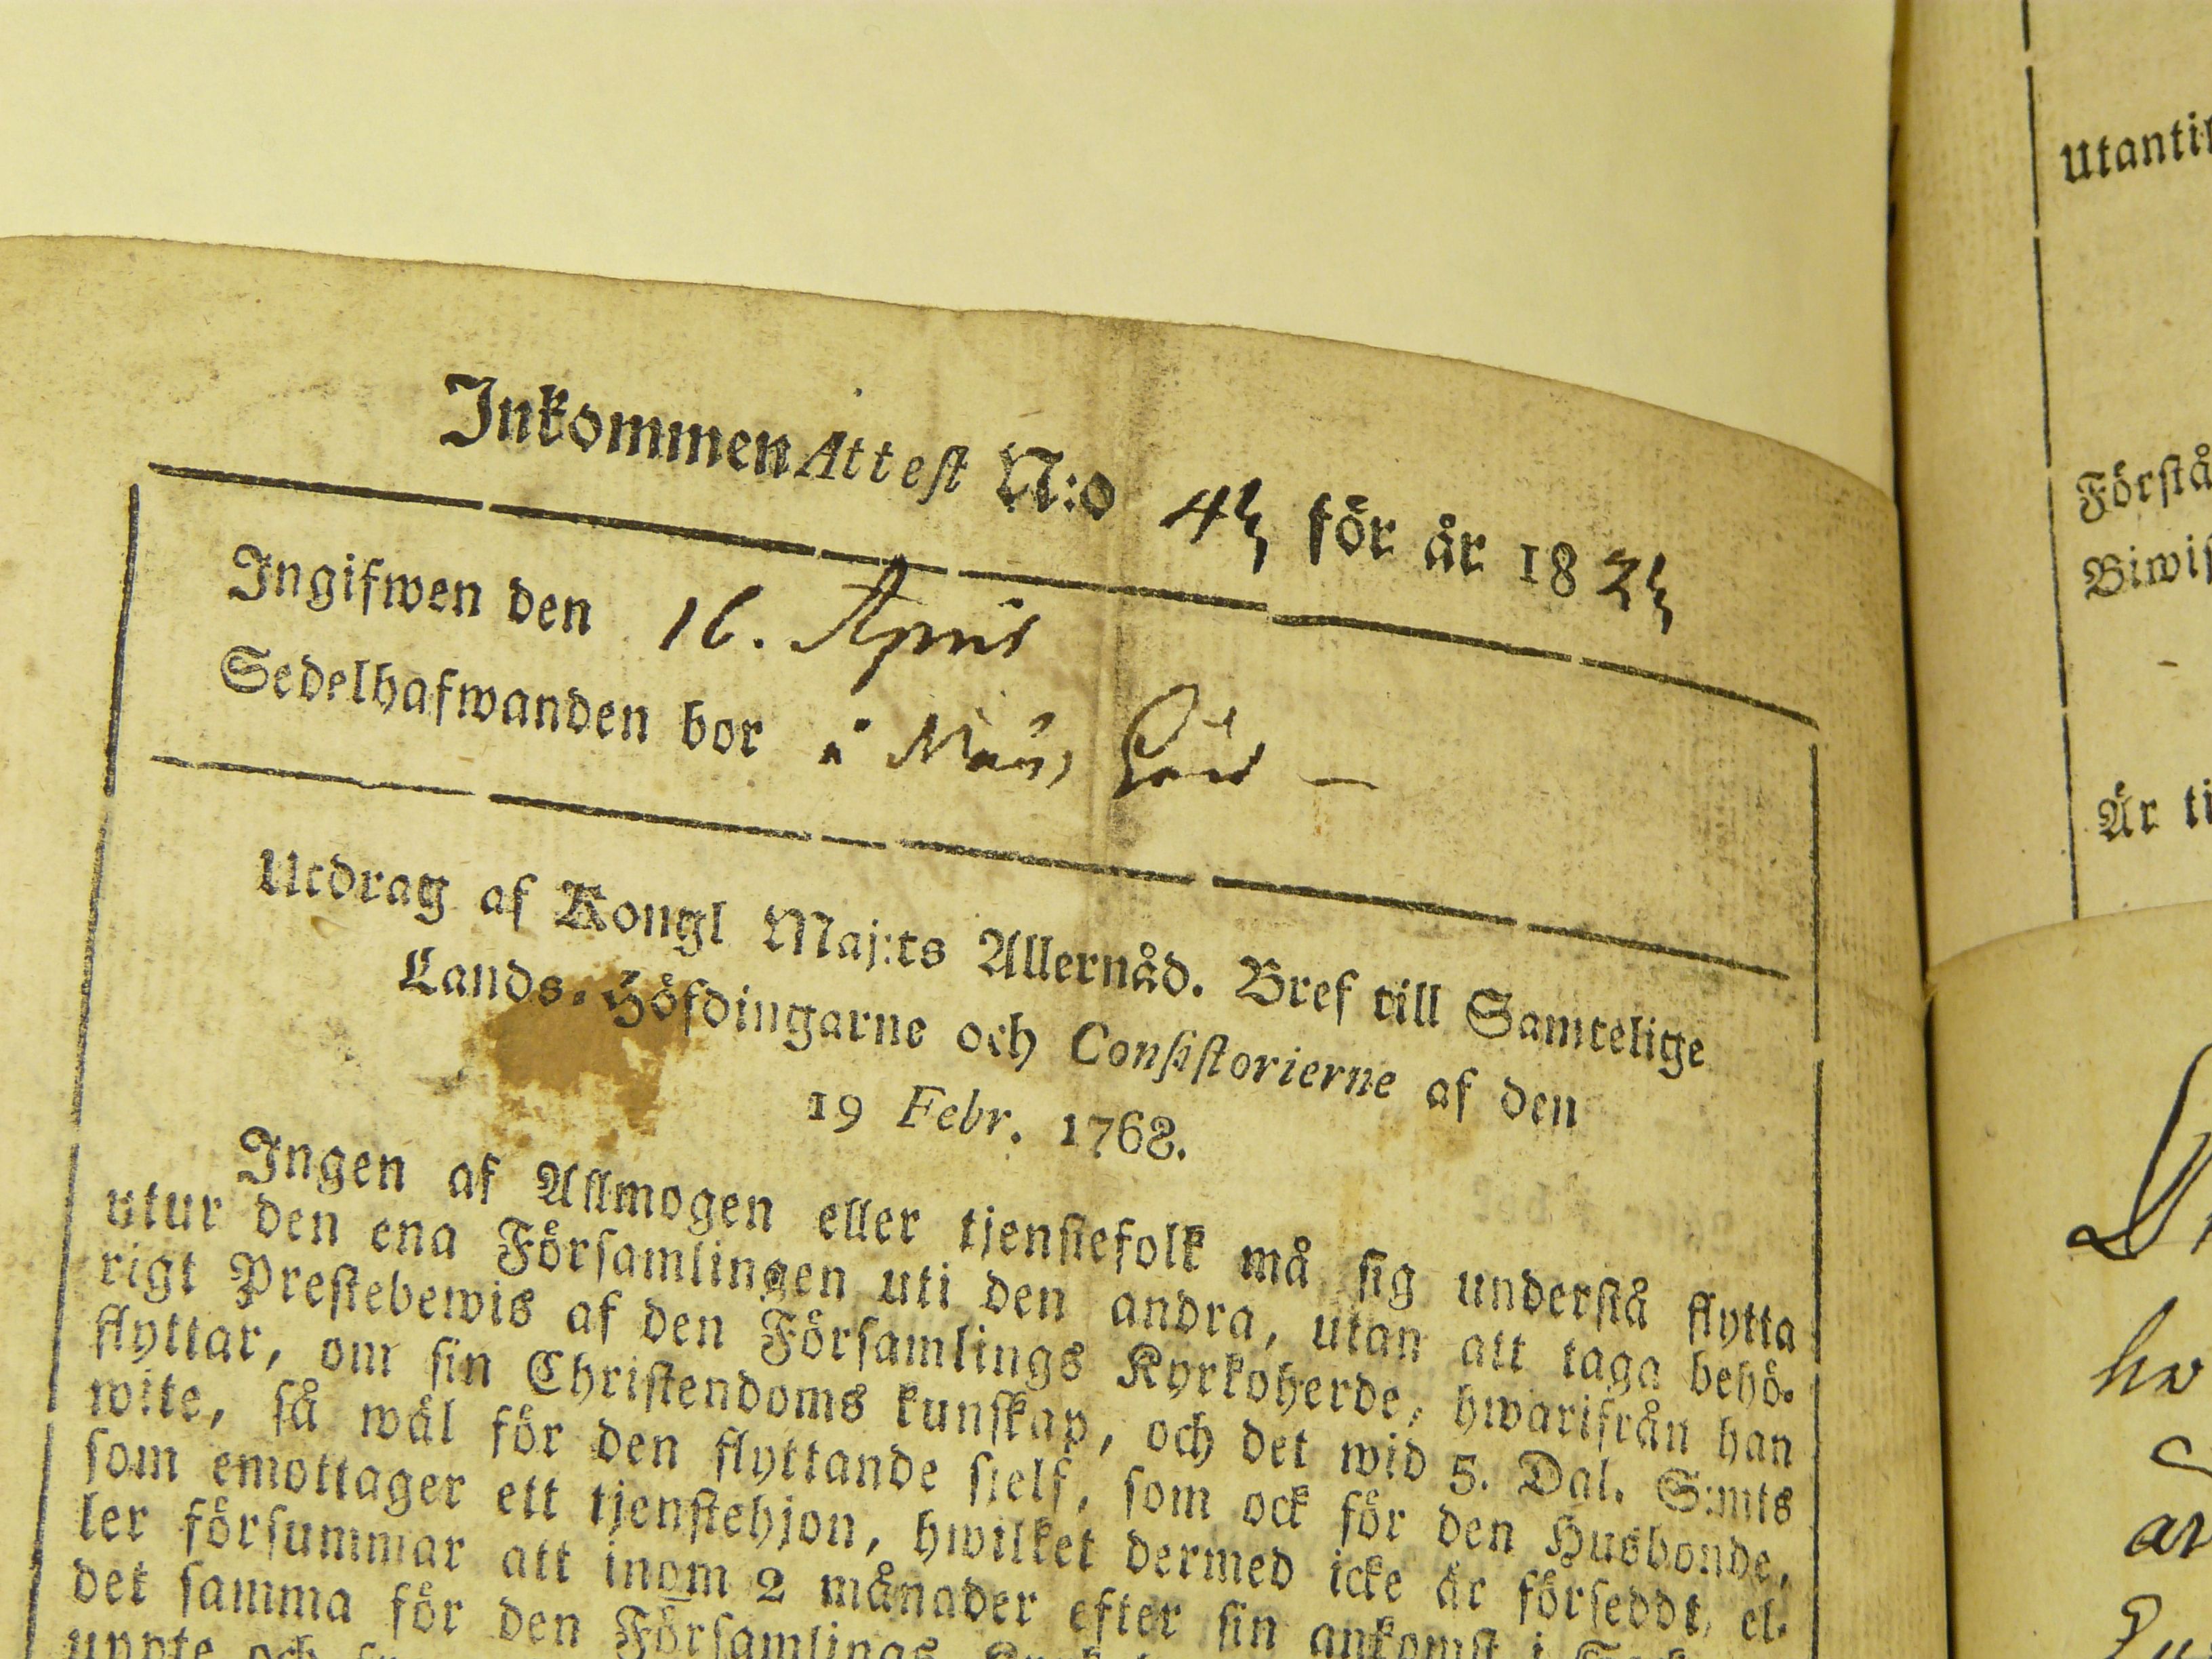 Inkommen Attest N:o 45 för år 1825
Ingifwen den 16. April
Sedelhafwanden bor i
Utdrag af Kongl Maj:ts Allernåd. Bref till Samtelige
Lands-Höfdingarne och Consistorierne af den
19 Febr. 1768.
Ingen af Allmogen eller tjenstefolk må sig understå flytta
utur den ena Församlingen uti den andra, utan att taga behö-
rigt Prestebewis af den Församlings Kyrkoherde, hwarifrån han
flyttar, om sin Christendoms kunskap, och det wid 5. Dal. S:mts
wite, så wäl för den flyttande sjelf, som ock för den Husbonde,
som emottager ett tjenstehjon, hwilket dermed icke är förseddt, el-
ler försummar att inom 2 månader efter sin ankomst i
det samma för den Församlings
Utantil
Förstå
Biwis
Är ti